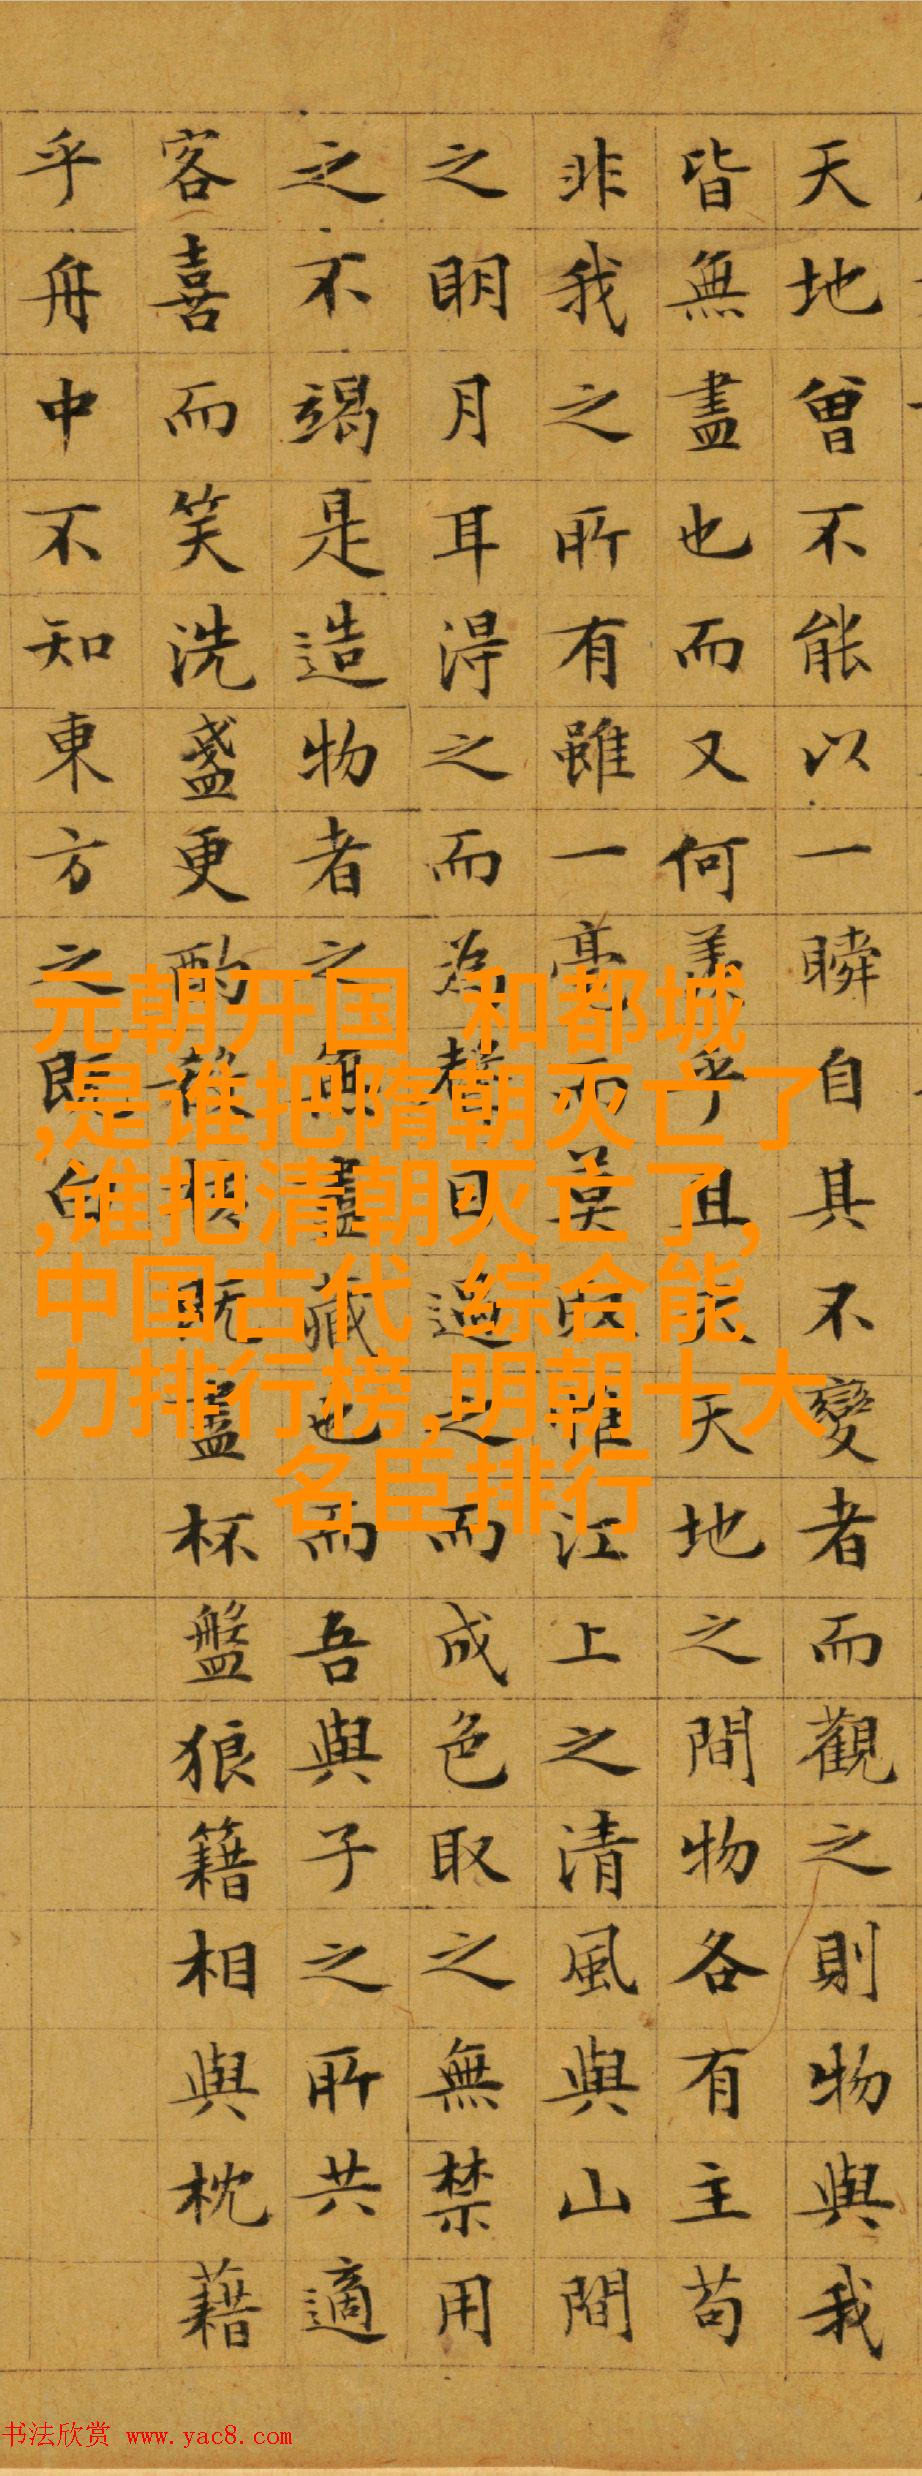 天地曾不能以一瞬自其不變者而觀之則物與我
皆無盡也而又何羡乎且夫天地之間物各有主苟
非我之所有雖一毫而莫取惟江上之清風與山間
之明月耳得之而為聲目遇之而成色取之無禁用
之不竭是造物者之無盡藏也而吾與子之所共適
客喜而笑洗盞更酌核既盡杯盤狼籍相與枕藉
乎舟中不知東方之既白
元朝开国 和都城
,是谁把隋朝灭亡了
,谁把清朝灭亡了,
中国古代 综合能
力排行榜,明朝十大
名臣排行
书法欣赏 www.yac8.com